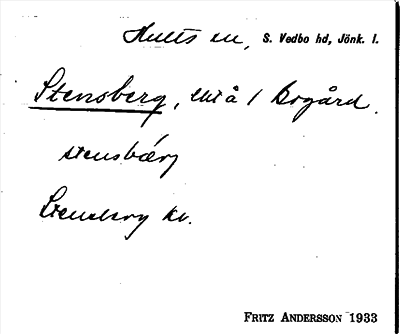 Hults sn, S. Vedbo hd, Jönk. l.
Stensberg, lht å / Bogård.
stensbærj
Stensberg kv.
FRITZ ANDERSSON 1933